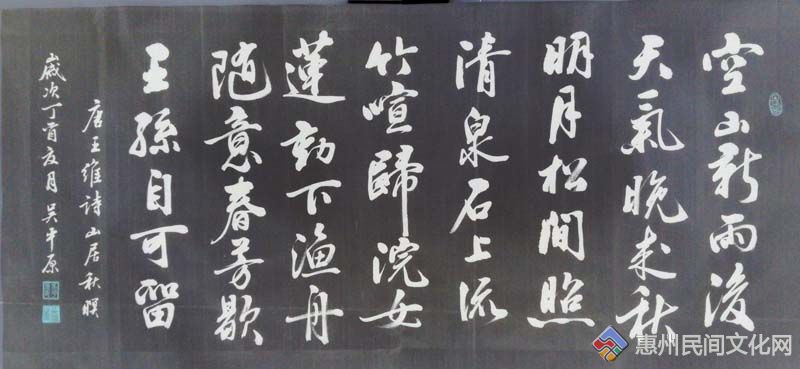 空山新雨後
天氣晚来秋
明月松間照
清泉石上流
竹喧歸浣女
蓮動下漁舟
随意春芳歇
王孫自可留
唐王維詩山居秋暝
歲次丁酉夏月吴平原
惠州民间文化网